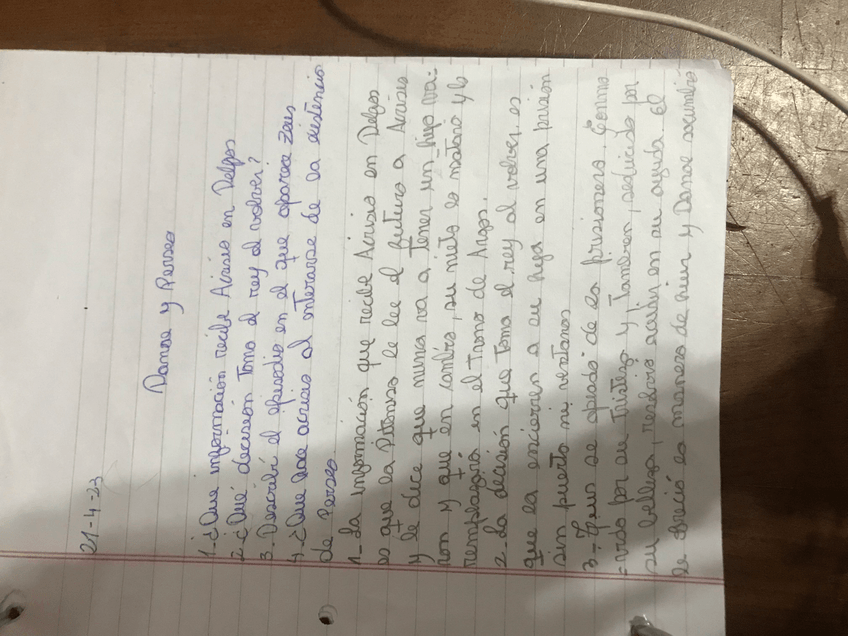 21-4-23
Danae y Perseo
1-¿Que información recibe Acrisio en Delfos
2-¿Qué decisión toma el rey al volver?
3-Describí el episodio en el que aparece Zeus
4-¿Que hace acrisio al enterarse de la existencia
de Perseo.
1-La información que recibe Acrisio en Delfos
es que la Pitonisa le lee el futuro a Acrisio
y le dice que nunca va a tener un hijo va-
ron y que en cambio, su nieto lo mataria y lo
remplazaria en el trono de Argos.
2-La decisión que toma el rey al volver es
que la encierren a su hija en una prisión
sin puerta ni ventanas
3- Zeus se apiadó de la prisionera. Conmo
-vido por su tristeza y, tambien, seducido por
su belleza, acudir en su ayuda. El
le ofreció la manera de huir y Danae